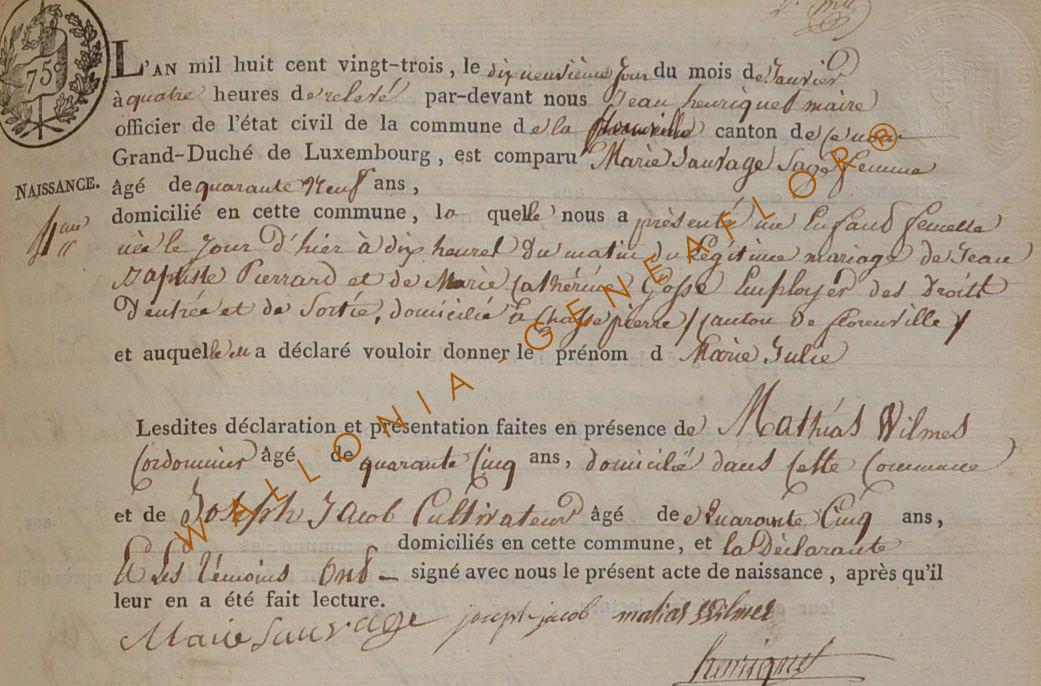 75c
L'AN mil huit cent vingt-trois, le dix neuvième jour du mois de Janvier
à quatre heures de relevé par-devant nous Jean henriquet maire
officier de l'état civil de la commune de la canton de
Grand-Duché de Luxembourg, est comparu Marie Sauvage Sage femme
NAISSANCE. âgé de quarante Neuf ans,
domicilié en cette commune, la quelle nous a présenté un Enfand femelle
née le jour d'hier à dix heures du matin du Légitime mariage de Jean
Baptiste Pierrard et de Marie Cathérine Gosse Employér des Droits
D'entrée et de Sortie, domicilié à Chassepierre / Canton de florenville /
et auquel a déclaré vouloir donner le prénom d Marie Julie
Lesdites déclaration et présentation faites en présence de Mathias Wilmes
Cordonnier âgé de quarante Cinq ans, domicilié dans Cette Commune
et de Joseph Jacob Cultivateur âgé de Quarante Cinq ans,
domiciliés en cette commune, et la Déclarante
Et Les témoins Ont signé avec nous le présent acte de naissance, après qu'il
leur en a été fait lecture.
Marie Sauvage joseph jacob matias Wilmes
henriquet
WALLONIA - GENEAFLORE